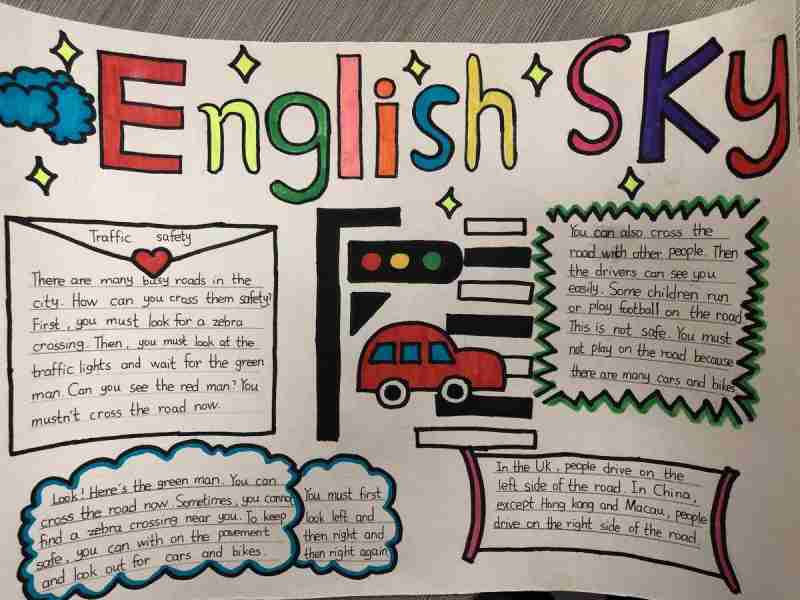 English Sky
Traffic safety
There are many busy roads in the
city. How can you cross them safety?
First, you must look for a zebra
crossing. Then, you must look at the
traffic lights and wait for the green
man. Can you see the red man? You
mustn't cross the road now.
Look! Here's the green man. You can
cross the road now. Sometimes, you cannot
find a zebra crossing near you. To keep
safe, you can with on the pavement
and look out for cars and bikes.
You must first
look left and
then right and
then right again
You can also cross the
road with other people. Then
the drivers can see you
easily. Some children run
or play football on the road
This is not safe. You must
not play on the road because
there are many cars and bikes
In the UK, people drive on the
left side of the road. In China,
except Hong kong and Macau, people
drive on the right side of the road